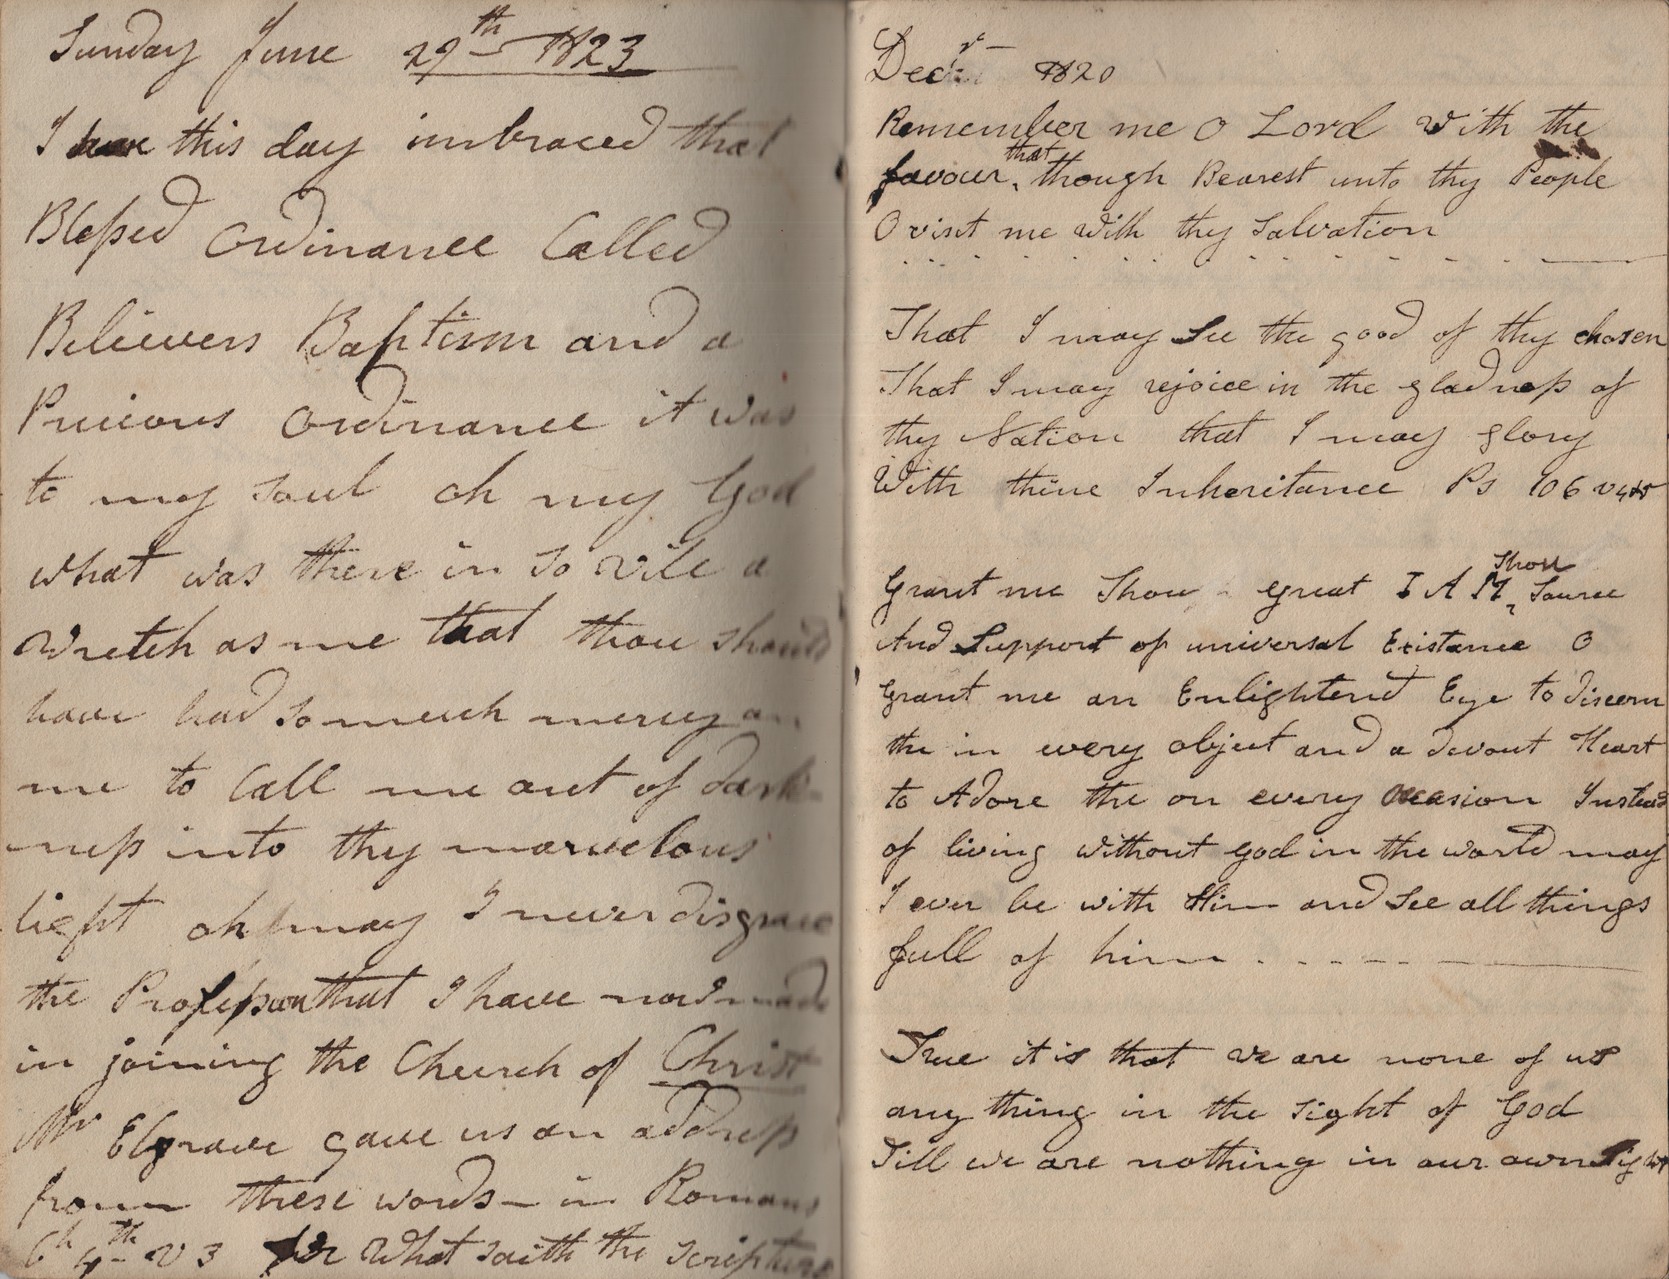 Sunday June 29th 1823
I have this day imbraced that
Blessed Ordinance Called
Believers Baptism and a
Precious Ordinance it was
to my soul oh my God
what was there in so vile a
wretch as me that thou should
have had so much mercy on
me to Call me out of dark-
ness into thy marvelous
light oh may I never disgrace
the Profession that I have now made
in joining the Church of Christ
Mr Elgrave gave us an address
from these words in Romans
Ch 4th v 3 for What saith the scripture
Decr 1820
Remember me O Lord With the
favour that though Bearest unto thy People
O visit me With thy Salvation
That I may See the good of thy chosen
That I may rejoice in the gladness of
thy Nation that I may glory
With thine Inheritance Ps 106 v 4
Grant me Thou great I A M Thou Source
And Support of universal Existance O
Grant me an Enlightend Eye to discern
the in every object and a devout Heart
to Adore the on every Occasion Instead
of living without god in the world may
I ever be with Him and See all things
full of him
True it is that we are none of us
any thing in the sight of God
Till we are nothing in our own Sight